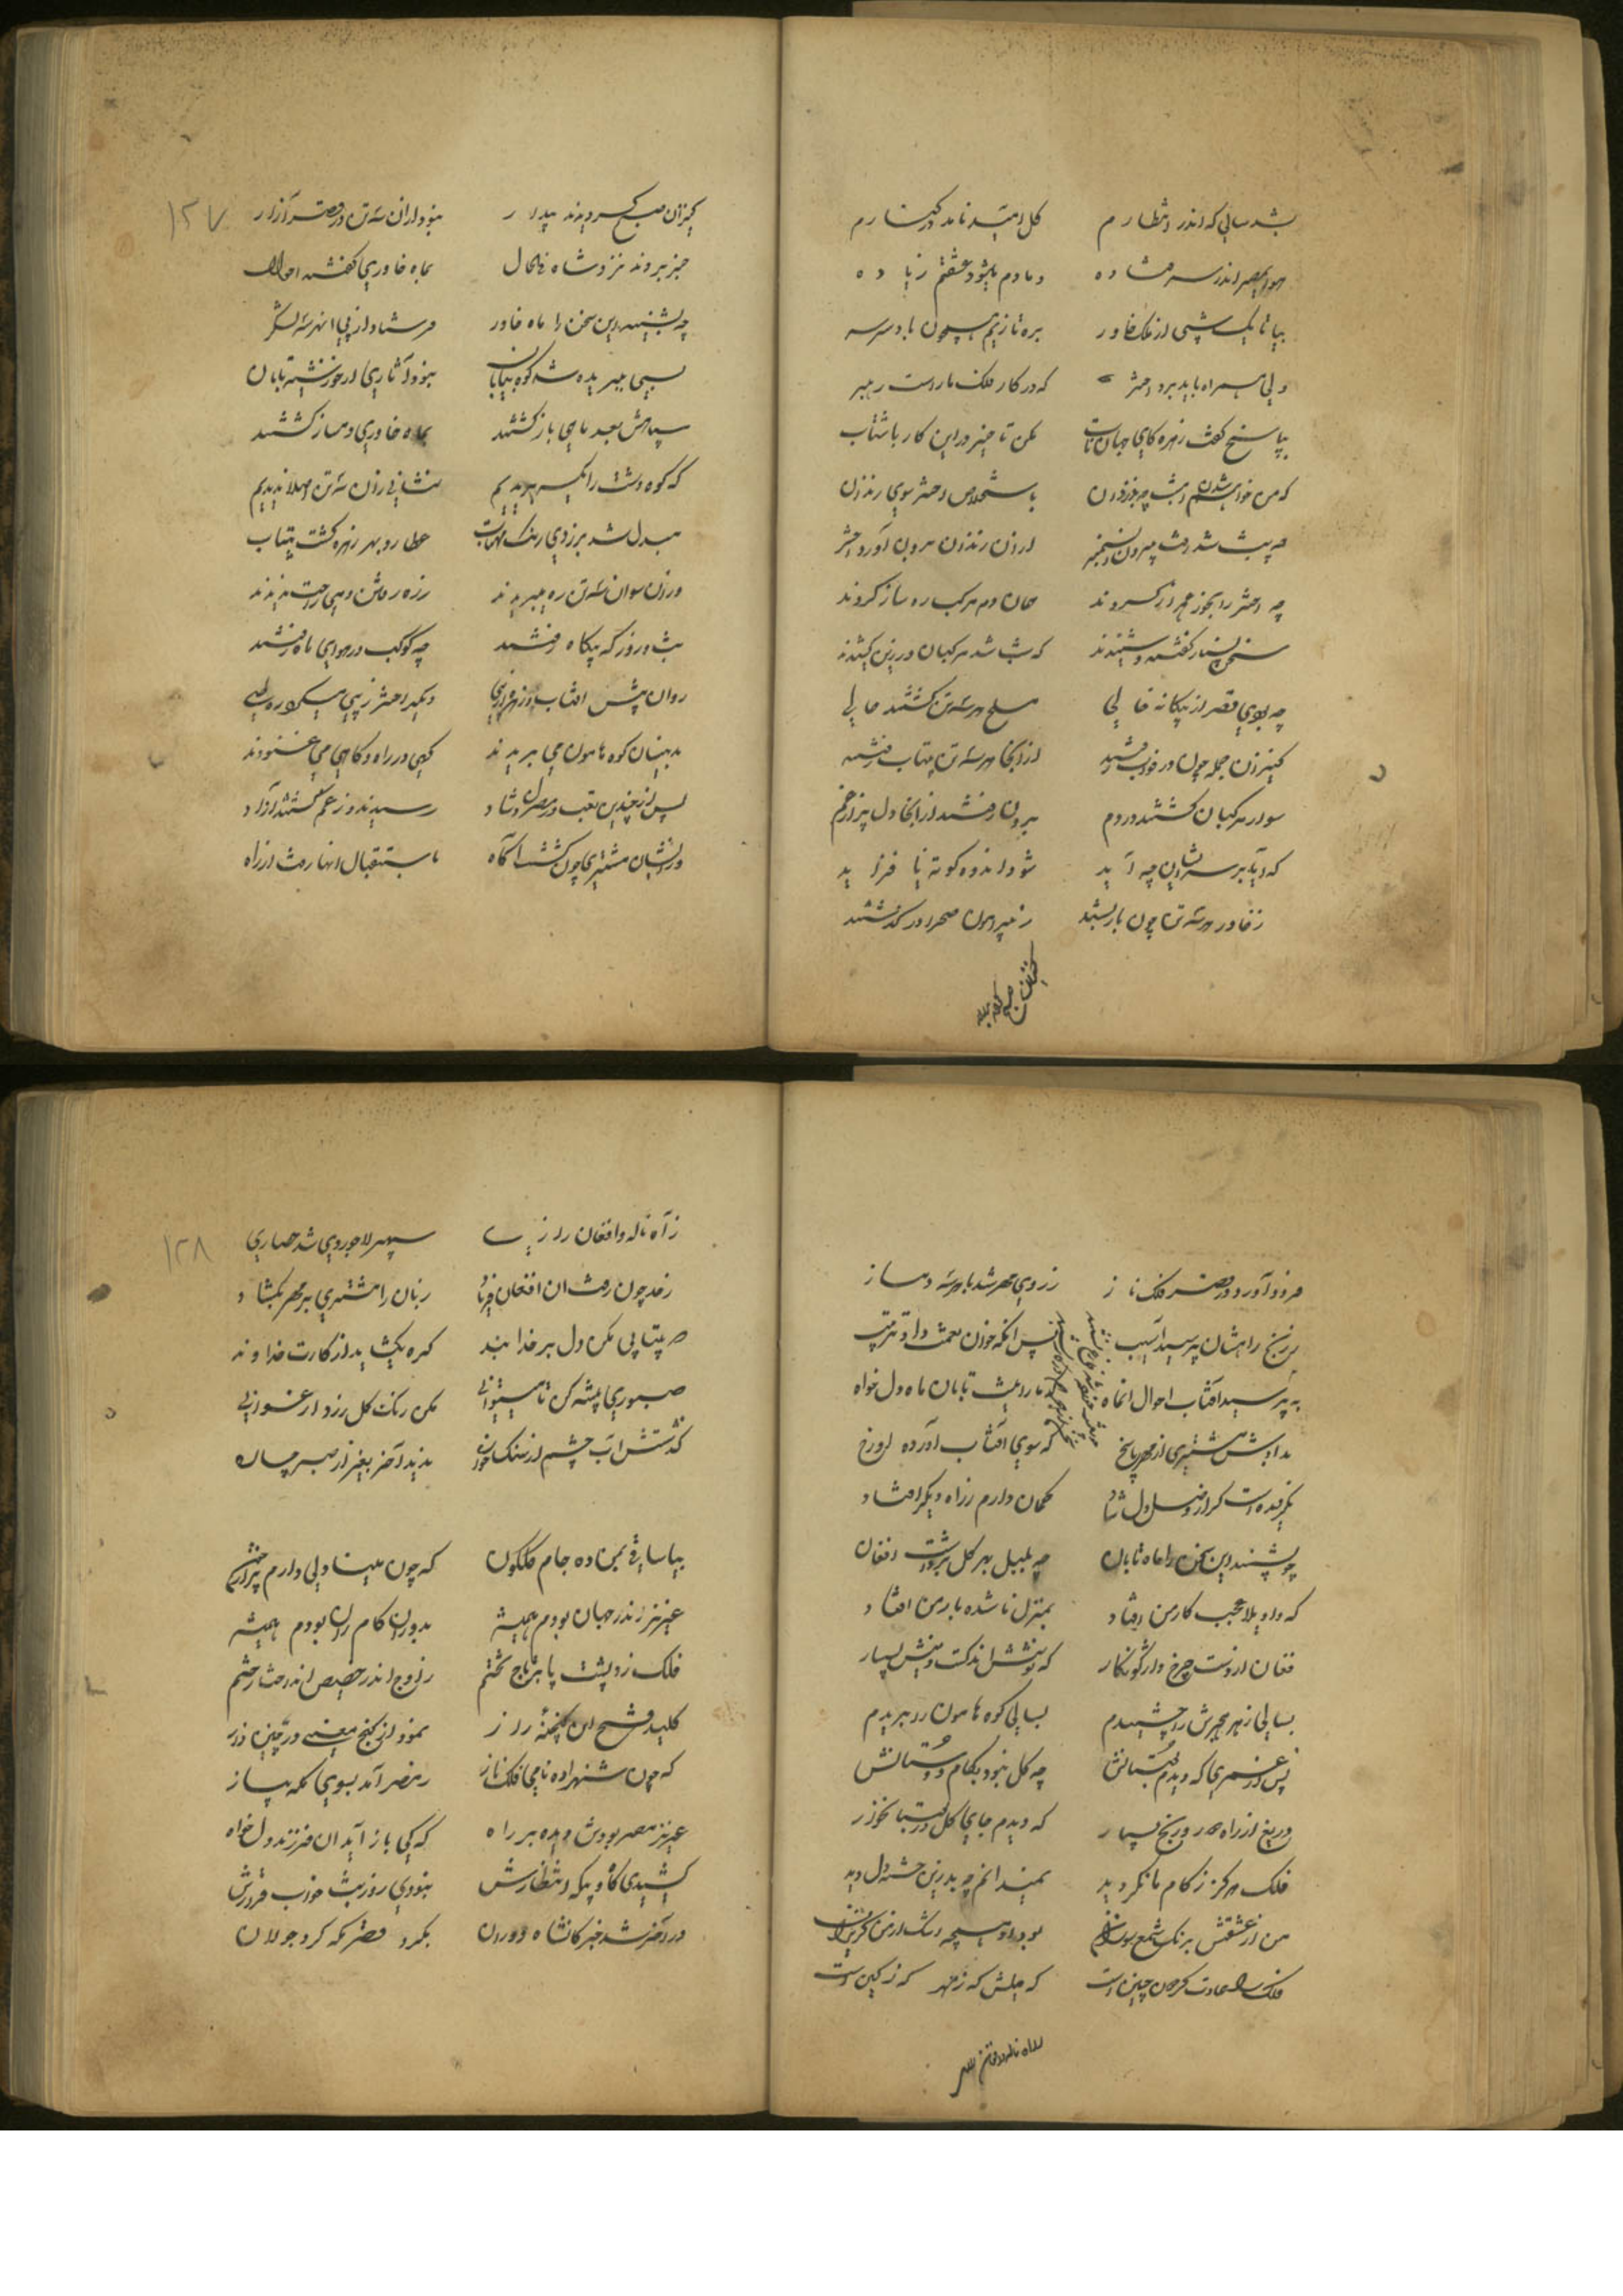 بشد سالی که اندر انتظارم گل امید نامد در کنارم
هوای مصر اندر سر فتاده دمادم میشود عشقم زیاده
بیا تا یک شبی از ملک خاور بره تازیم همچون باد صرصر
ولی همراه باید برد اختر که در کار فلک ما راست رهبر
بپاسخ گفت زهره کای جهان تاب مکن تاخیر در این کار بشتاب
که من خواهم شدن امشب باستخلاص اختر سوی زندان
چه شب شد رفت بیرون از آن زندان برون آورد اختر
چه اختر را بخود همراز کردند همان دم مرکب ره ساز کردند
سخن بسیار گفتند و شنیدند که شب شد مرکبان در زین کشیدند
چه بودی قصر از بیگانه خالی مسلح هر سه تن گشتند حالی
کنیزان جمله چون در خواب رفتند از آنجا هر سه تن بیتاب رفتند
سوار مرکبان گشتند در دم برون رفتند از آنجا دل پر از غم
که آید بر سر ایشان چه آید شود اندوه کوته یا فزاید
ز خاور هر سه تن چون بار بستند ز پیرامون صحرا در گذشتند
کنیزان صبح
۱۲۷
کنیزان صبح گردیدند بیدار نبود از آن سه تن در قصر آثار
خبر بردند نزد شاه فی الحال بماه خاوری گفتند احوال
چه بشنید این سخن را ماه خاور فرستاد از پی آنهر سه لشکر
بسی ببریده شد کوه بیابان نبود آثاری از خورشید تابان
سپاهش بعد ماهی باز گشتند بماه خاوری دمساز گشتند
که کوه دشت را یکسر بریدیم نشانی زان سه تن اصلا ندیدیم
مبدل شد بزردی رنگ مهتاب عطارد بهر زهره گشت بیتاب
وزان سوان سه تن ره میبریدند ز ره رفتن دمی راحت ندیدند
شب و روز که بیگاه رفتند چه کوکب در هوای ماه رفتند
روان پیش افتاب و زهره از پی دیگر اختر ز پی میکرد ره طی
بدینسان کوه هامون می بریدند گهی در راه و گاهی می غنودند
پس از چندین تعب در مصر دلشاد رسیدند و ز غم گشتند آزاد
از ایشان مشتری چون گشت آگاه باستقبال انها رفت از راه
فرود آورد در قصر فلک ناز ز روی مهر شد با هر سه دمساز
ز رنج راهشان پرسید آسیب پس انگه خوان نعمت داد ترتیب
بپرسید آفتاب احوال انماه
بدادش مشتری از مهر پاسخ که سوی آفتاب آورده ام رخ
گمان دارم ز راه دیگر افتاد
چو بشنید این سخن را ماه تابان چه بلبل بهر گل برداشت افغان
که واویلا عجب کار من افتاد بمنزل ناشده بار من افتاد
فغان از دست چرخ واژگونکار که نوشش اندکست و نیش بسیار
بسالی زهر هجرش را چشیدم بسالی کوه هامون را بریدم
پس از عمری که دیدم بستانش چه گل نبود بکام دوستانش
دریغ از راه دور و رنج بسیار که دیدم جای گل در بستان خار
فلک هرگز ز کام ما نگردید نمیدانم چه بد زین خسته دل دید
من از عشقش برنگ شمع سوزان
فلک را عادت گردون چنین است که مهرش که ز مهر که ز کین است
ز آه ناله و افغان
۱۲۸
ز آه ناله و افغان و زاری سپهر لاجوردی شد حصاری
ز حد چون رفت ان افغان فریاد زبان را مشتری بر مهر بگشاد
که بیتابی مکن دل بر خدا بند گره بگشاید از کارت خداوند
صبوری پیشه کن تا میتوانی مکن رنگ گل زرد ارغوانی
گذشتش اب چشم از سنگ خاره ندید آخر بغیر از صبر چاره
بیا ساقی بمن ده جام گلگون که چون مینا دلی دارم پر از خون
عزیز اندر جهان بودم همیشه بدوران کامران بودم همیشه
فلک زد پشت پا بر تاج تختم ز اوج اندر حضیض انداخت رختم
کلید فتح این گنجینه راز نمود از گنج معنی در چنین باز
که چون شهزاده نامی فلک ناز ز مصر آمد بسوی مکه بساز
عزیز مصر بودش دیده بر راه که کی باز آید ان فرزند دلخواه
کشیدی گاه و بیگه انتظارش نبودی روز و شب خواب و قرارش
در آخر شد خبر کانشاه دوران بگرد قصر مکه کرد جولان